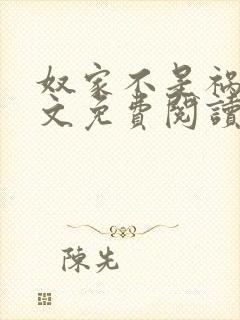 奴家不是祸
文免費閱讀
陳先